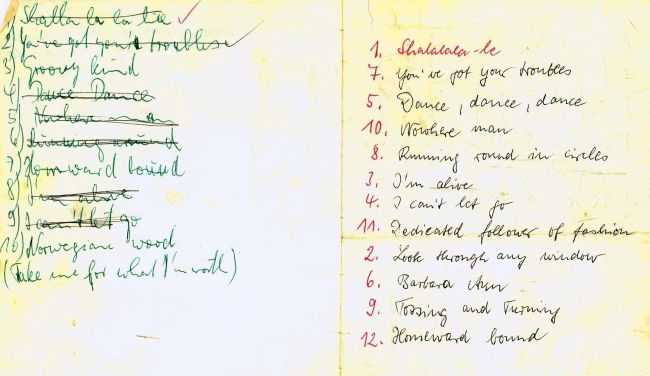 1) Shalla la la lee ✓
2) You've got your troubles ✓
3) Groovy kind
4) Dance Dance
5) Nowhere man
6) Running around
7) Homeward bound
8) I'm alive
9) I can't let go
10) Norwegian wood
(Take me for what I'm worth)
1. Shalalala-le
7. You've got your troubles
5. Dance, dance, dance
10. Nowhere man
8. Running round in circles
3. I'm alive
4. I can't let go
11. Dedicated follower of fashion
2. Look through any window
6. Barbara Ann
9. Tossing and Turning
12. Homeward bound